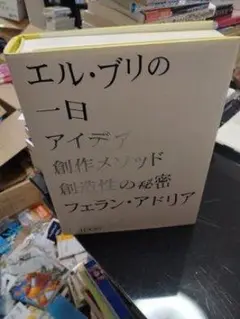 エル・ブリの
一日
アイデア
創作メソッド
創造性の秘密
フェラン・アドリア